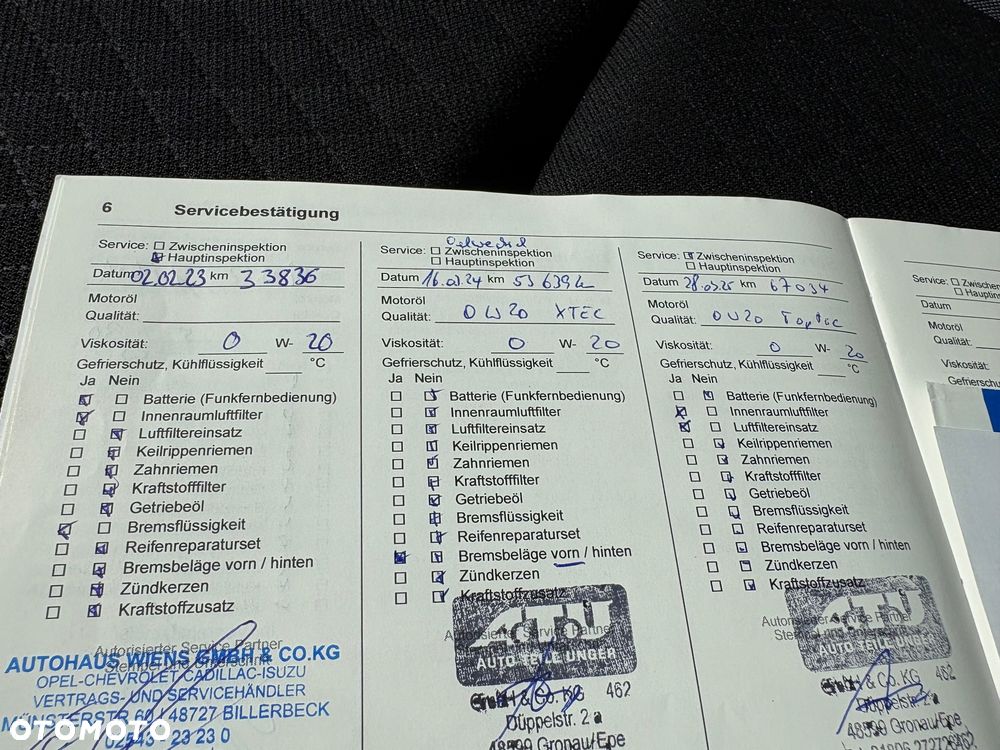 6 Servicebestätigung
Service: Zwischeninspektion
Hauptinspektion
Datum 02.02.23 km 33836
Motoröl
Qualität:
Viskosität: 0 W- 20
Gefrierschutz, Kühlflüssigkeit °C
Ja Nein
Batterie (Funkfernbedienung)
Innenraumluftfilter
Luftfiltereinsatz
Keilrippenriemen
Zahnriemen
Kraftstofffilter
Getriebeöl
Bremsflüssigkeit
Reifenreparaturset
Bremsbeläge vorn / hinten
Zündkerzen
Kraftstoffzusatz
Autorisierter Service Partner
AUTOHAUS WIENS GMBH & CO.KG
OPEL-CHEVROLET-CADILLAC-ISUZU
VERTRAGS- UND SERVICEHÄNDLER
MÜNSTERSTR. 60 / 48727 BILLERBECK
02543 - 23 23 0
Oelwechsel
Service: Zwischeninspektion
Hauptinspektion
Datum 16.03.24 km 53639
Motoröl
Qualität: 0W20 XTEC
Viskosität: 0 W- 20
Gefrierschutz, Kühlflüssigkeit °C
Ja Nein
Batterie (Funkfernbedienung)
Innenraumluftfilter
Luftfiltereinsatz
Keilrippenriemen
Zahnriemen
Kraftstofffilter
Getriebeöl
Bremsflüssigkeit
Reifenreparaturset
Bremsbeläge vorn / hinten
Zündkerzen
Kraftstoffzusatz
Autorisierter Service Partner
ATU
AUTO TEILE UNGER
GmbH & Co. KG 462
Düppelstr. 2 a
48599 Gronau/Epe
Service: Zwischeninspektion
Hauptinspektion
Datum 28.03.25 km 67034
Motoröl
Qualität: 0W20 Toptec
Viskosität: 0 W- 20
Gefrierschutz, Kühlflüssigkeit °C
Ja Nein
Batterie (Funkfernbedienung)
Innenraumluftfilter
Luftfiltereinsatz
Keilrippenriemen
Zahnriemen
Kraftstofffilter
Getriebeöl
Bremsflüssigkeit
Reifenreparaturset
Bremsbeläge vorn / hinten
Zündkerzen
Kraftstoffzusatz
Autorisierter Service Partner
ATU
AUTO TEILE
& Co. KG 462
Düppelstr. 2 a
48599 Gronau/Epe
Service: Zwischen
Haupti
Datum
Motoröl
Qualität:
Viskosität:
Gefriersch
OTOMOTO